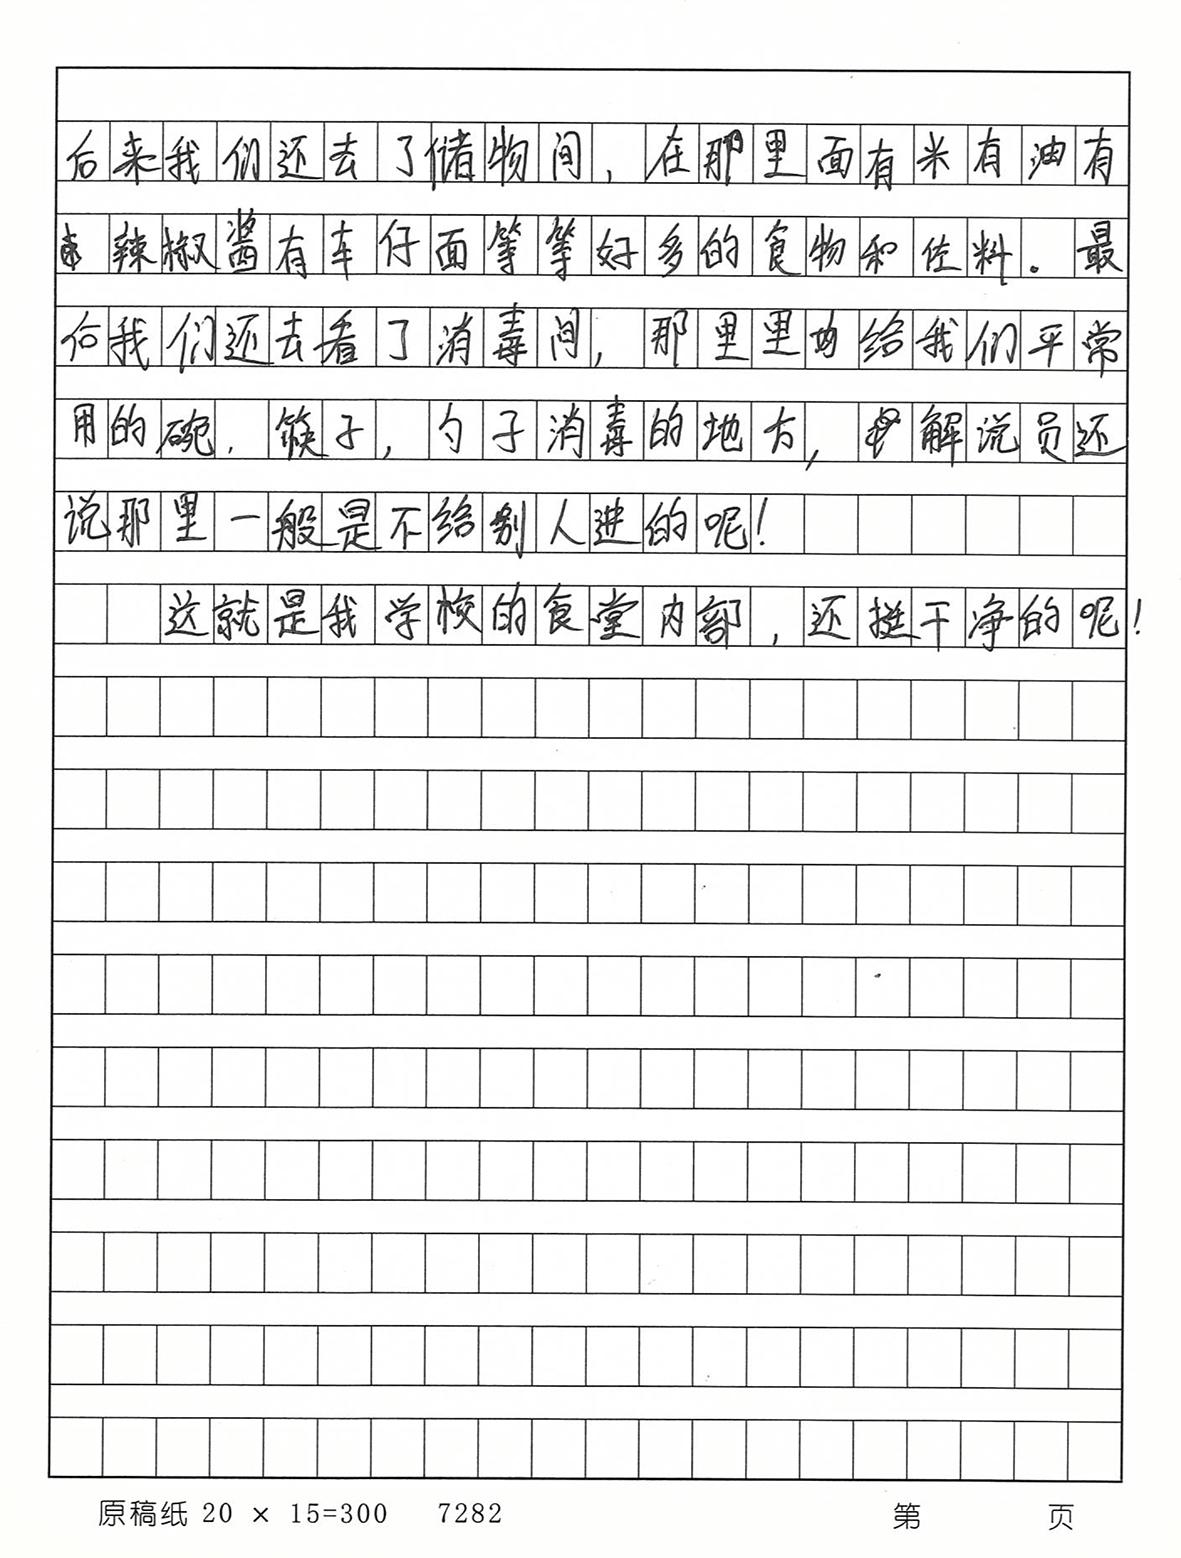 后来我们还去了储物间，在那里面有米有油有
辣椒酱有车仔面等等好多的食物和佐料。最
后我们还去看了消毒间，那里里均给我们平常
用的碗，筷子，勺子消毒的地方，解说员还
说那里一般是不给别人进的呢！
这就是我学校的食堂内部，还挺干净的呢！
原稿纸 20 × 15=300 7282 第 页